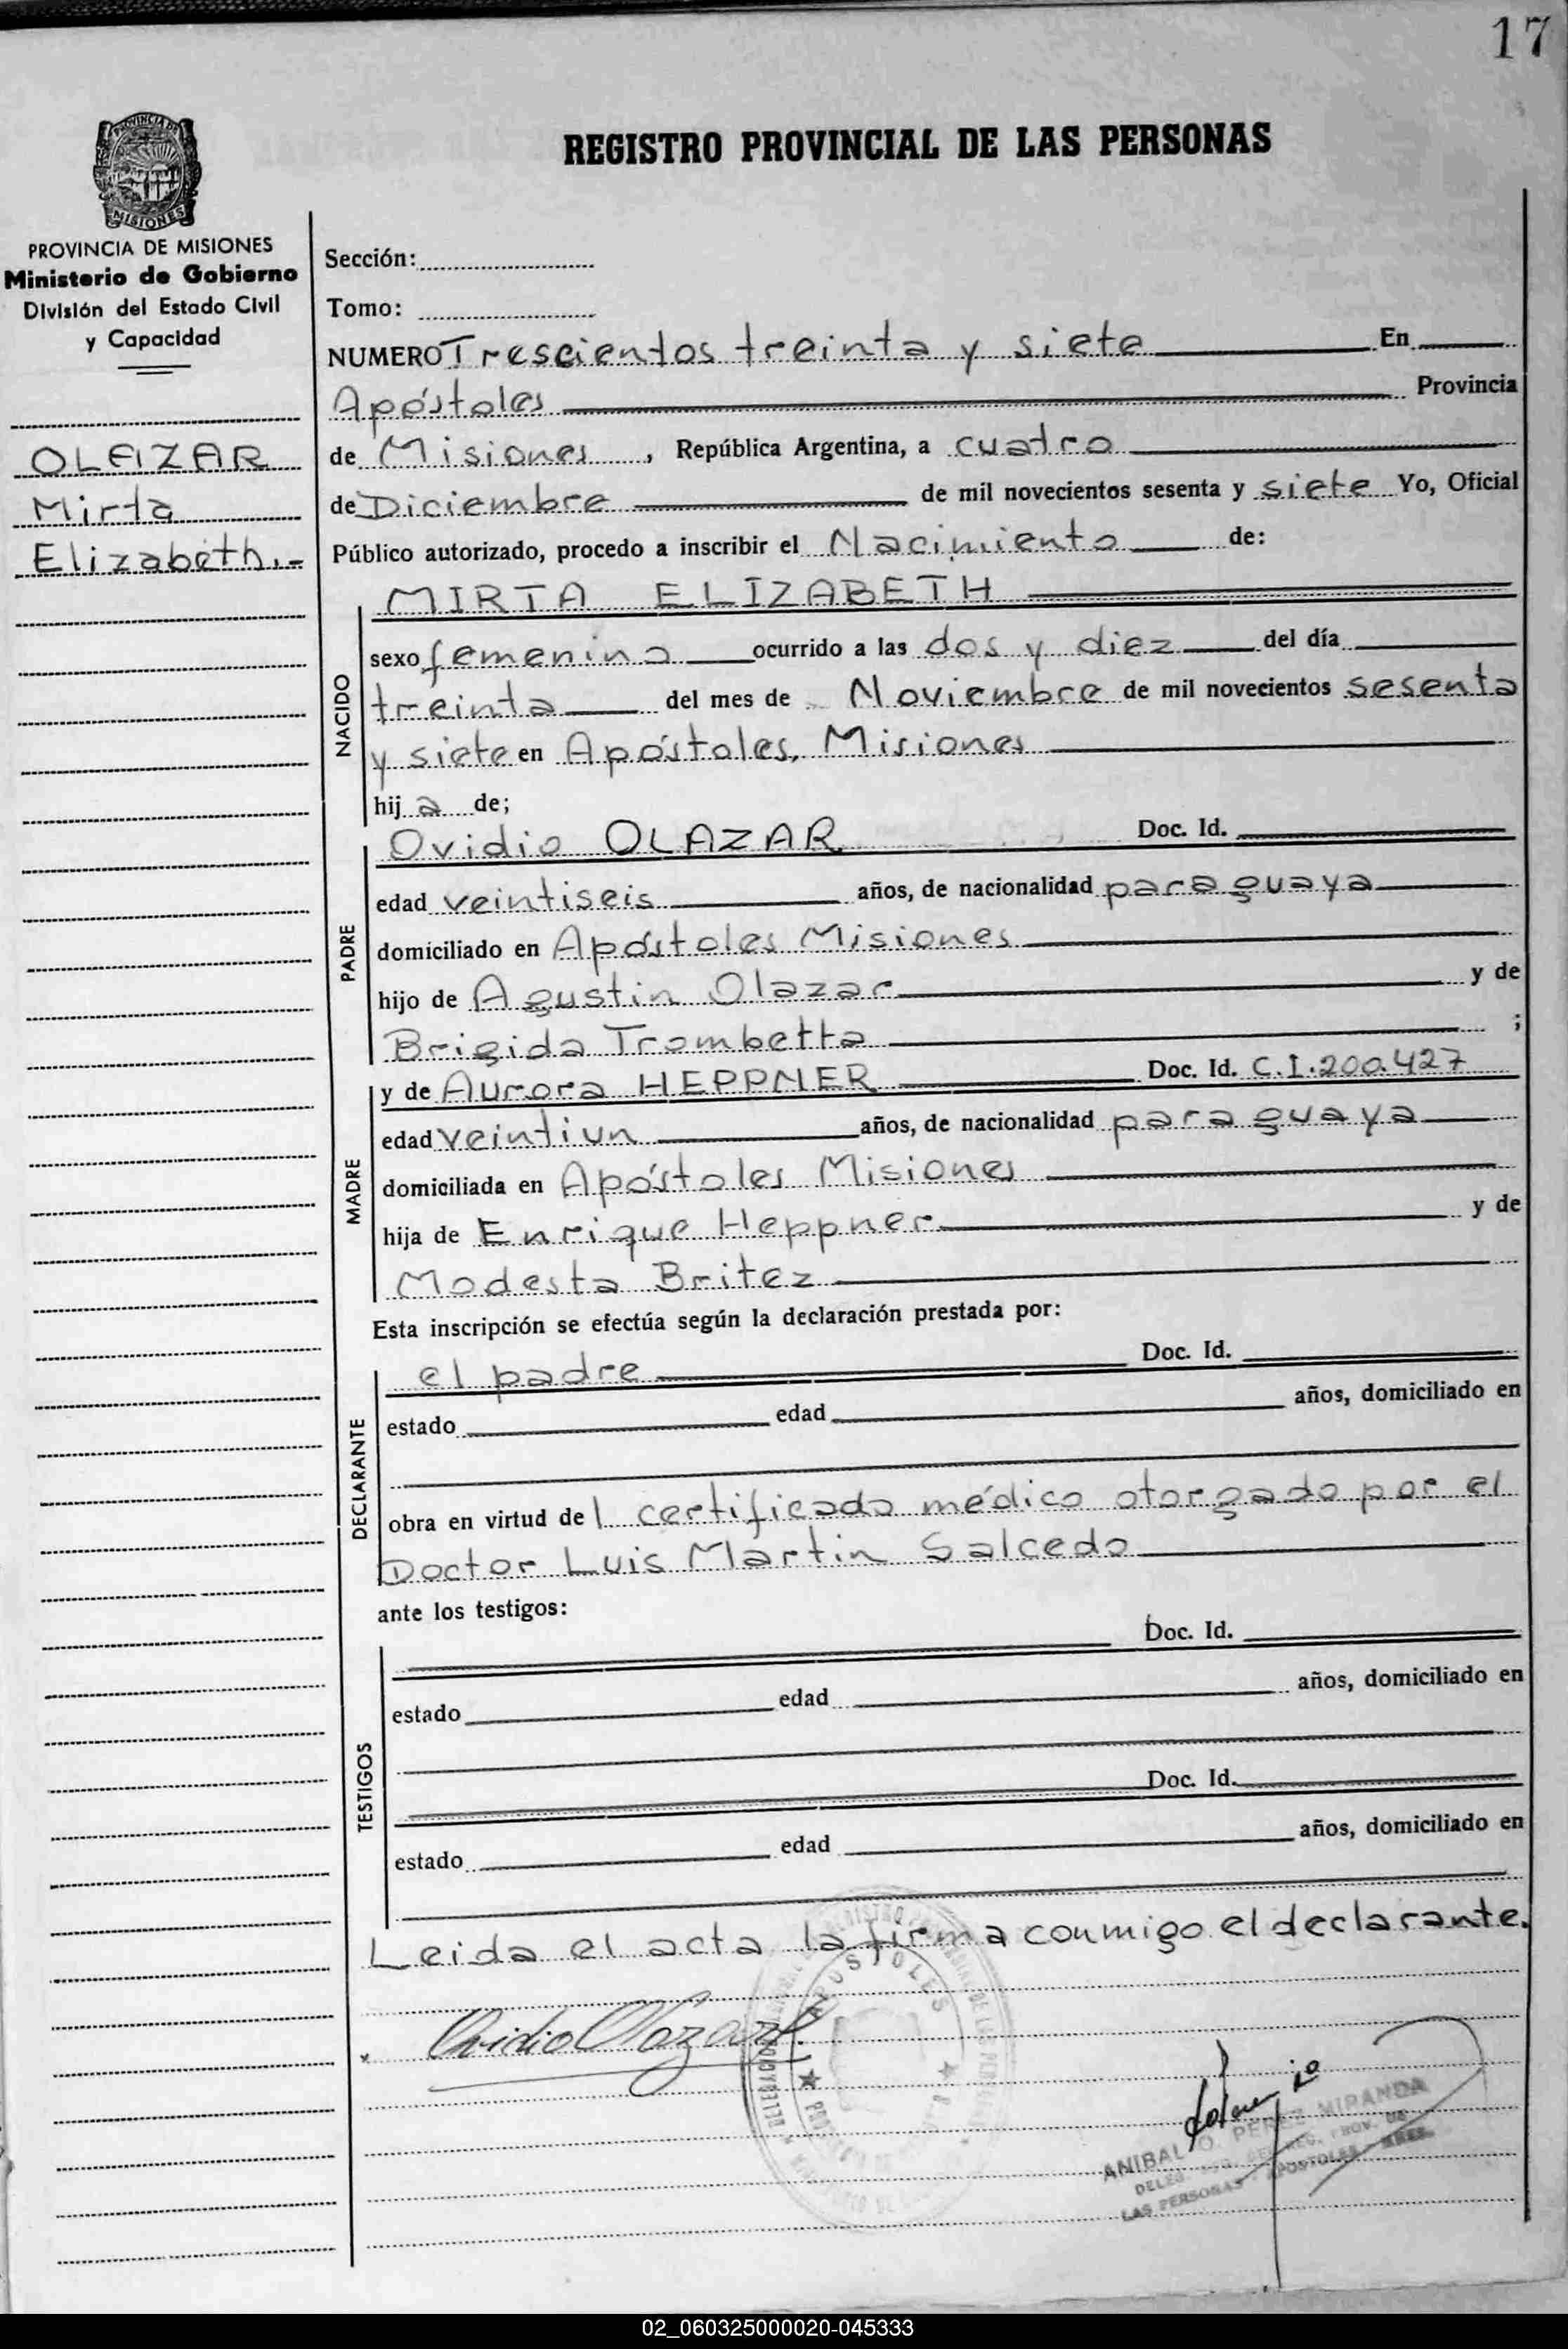 17
PROVINCIA DE
MISIONES
REGISTRO PROVINCIAL DE LAS PERSONAS
PROVINCIA DE MISIONES
Ministerio de Gobierno
División del Estado Civil
y Capacidad
OLAZAR
Mirta
Elizabeth.-
Sección:
Tomo:
NUMERO Trescientos treinta y siete En
Apóstoles Provincia
de Misiones, República Argentina, a cuatro
de Diciembre de mil novecientos sesenta y siete Yo, Oficial
Público autorizado, procedo a inscribir el Nacimiento de:
NACIDO
MIRTA ELIZABETH
sexo femenino ocurrido a las dos y diez del día
treinta del mes de Noviembre de mil novecientos sesenta
y siete en Apóstoles, Misiones
hij a de;
PADRE
Ovidio OLAZAR Doc. Id.
edad veintiseis años, de nacionalidad paraguaya
domiciliado en Apóstoles Misiones
hijo de Agustin Olazar y de
Brigida Trombetta ;
MADRE
y de Aurora HEPPNER Doc. Id. C.I.200.427
edad veintiun años, de nacionalidad paraguaya
domiciliada en Apóstoles Misiones
hija de Enrique Heppner y de
Modesta Britez
Esta inscripción se efectúa según la declaración prestada por:
DECLARANTE
el padre Doc. Id.
estado edad años, domiciliado en
obra en virtud de l certificado médico otorgado por el
Doctor Luis Martin Salcedo
ante los testigos:
TESTIGOS
Doc. Id.
estado edad años, domiciliado en
Doc. Id.
estado edad años, domiciliado en
Leida el acta la firma conmigo el declarante.
Ovidio Olazar
APOSTOLES
ANIBAL O. PEREZ MIRANDA
LAS PERSONAS APOSTOLES
02_060325000020-045333